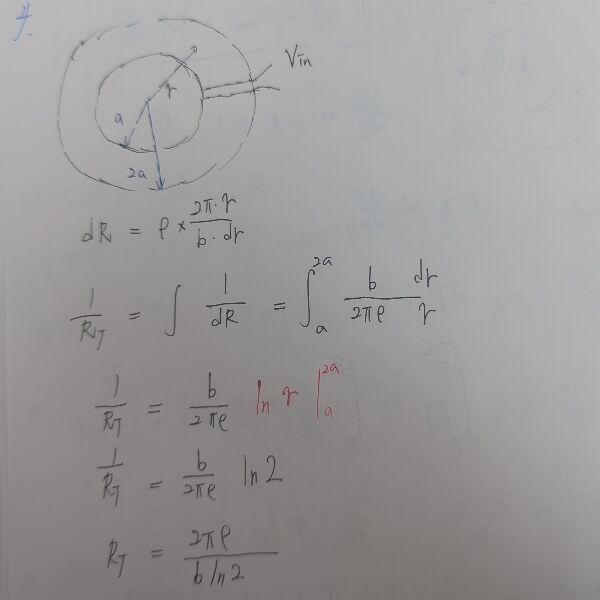 4.
Vin
r
a
2a
dR = ρ × 2π·r / b·dr
1/R_T = ∫ 1/dR = ∫_a^{2a} b/2πρ dr/r
1/R_T = b/2πρ ln r |_a^{2a}
1/R_T = b/2πρ ln 2
R_T = 2πρ / b ln 2